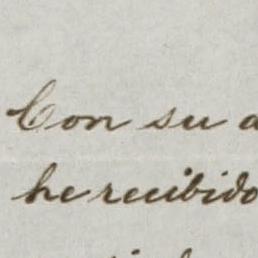 Con su a
he recibido